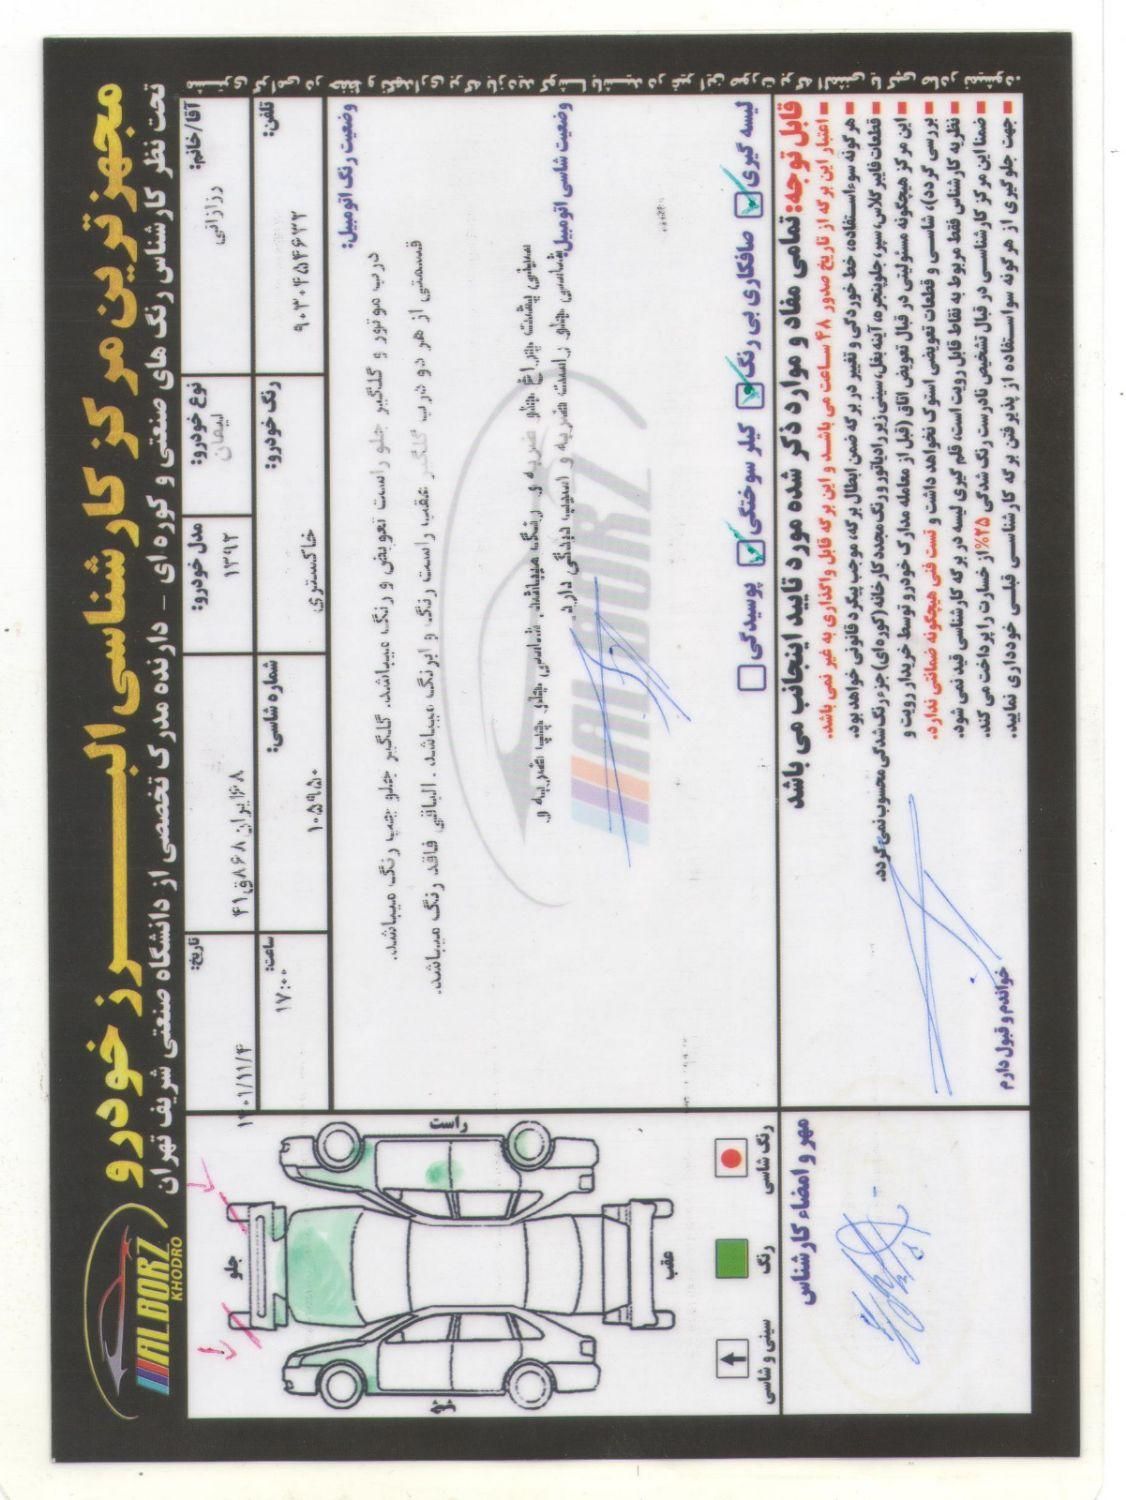 مجهزترین مرکز کارشناسی البرز خودرو
تحت نظر کارشناس رنگ های صنعتی و کوره ای - دارنده مدرک تخصصی از دانشگاه صنعتی شریف تهران
ALBORZ
KHODRO
آقا/خانم: رزازانی
نوع خودرو:
مدل خودرو: ۱۳۹۲
۱۶۸ایران۸۶۸ق۴۱
تاریخ: ۱۴۰۱/۱۱/۴
تلفن: ۹۰۳۰۴۵۴۶۳۲
رنگ خودرو: خاکستری
شماره شاسی: ۱۰۵۹۵۰
ساعت: ۱۷:۰۰
وضعیت رنگ اتومبیل:
درب موتور و گلگیر جلو راست تعویض و رنگ میباشد. گلگیر جلو چپ رنگ میباشد.
قسمتی از هر دو درب گلگیر عقب راست رنگ و ابرنگ میباشد. الباقی فاقد رنگ میباشد.
وضعیت شاسی اتومبیل:
سینی پشت چراغ جلو ضربه و رنگ میباشد. شاسی جلو چپ ضربه و
شاسی جلو راست ضربه و آسیب دیدگی دارد.
ALBORZ
لیسه گیری
صافکاری بی رنگ
کیلر سوختگی
پوسیدگی
قابل توجه: تمامی مفاد و موارد ذکر شده مورد تایید اینجانب می باشد
اعتبار این برگه از تاریخ صدور ۴۸ ساعت می باشد و این برگه قابل واگذاری به غیر نمی باشد.
هرگونه سوءاستفاده، خط خوردگی و تغییر در برگه ضمن ابطال برگه، موجب پیگرد قانونی خواهد بود.
قطعات فایبرگلاس، سپر، جلوپنجره، آینه بغل، سینی زیر رادیاتور و رنگ مجدد کارخانه (کوره ای) جزء رنگ شدگی محسوب نمی گردد.
این مرکز هیچگونه مسئولیتی در قبال تعویض اتاق (قبل از معامله مدارک خودرو توسط خریدار رویت و
بررسی گردد)، شاسی و قطعات تعویضی استوک نخواهد داشت و تست فنی هیچگونه ضمانتی ندارد.
نظریه کارشناس فقط مربوط به نقاط قابل رویت است، قلم گیری لیسه در برگه کارشناسی قید نمی شود.
ضمنا این مرکز کارشناسی در قبال تشخیص نادرست رنگ شدگی ۲۵٪ از خسارت را پرداخت می کند.
جهت جلوگیری از هرگونه سواستفاده از پذیرفتن برگه کارشناسی قبلی خودداری نمایید.
خواندم و قبول دارم
جلو
راست
عقب
چپ
سینی و شاسی
رنگ
رنگ شاسی
مهر و امضاء کارشناس